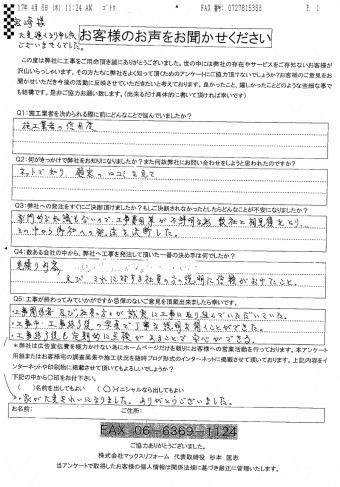 17年 4月 6日(木) 11:24 AM
FAX 番号: 0727815355
P. 1
宮崎様
大変遅くなり申し訳
ございませんでした。
お客様のお声をお聞かせください
この度は弊社に工事をご用命頂き誠にありがとうございます。世の中には弊社の存在やサービスをご存知ないお客様が
沢山いらっしゃいます。その方たちに弊社をよく知って頂くためのアンケートにご協力頂けないでしょうか?お客様のご意見をお
聞かせいただき今後の活動に反映させていただきたいと考えております。良かったこと、嬉しかったことどのような些細な事で
も結構です。是非ご協力お願い致します。(出来るだけ具体的に書いて頂ければ幸いです)
Q1:施工業者を決められる際に前にどんなことで悩んでいましたか?
施工業者の信用度
Q2:何がきっかけで弊社をお知りになりましたか?また何故弊社にお問い合わせをしようと思われたのですか?
ネットで知り、顧客の口コミを見て
Q3:弊社への発注をすぐにご決断頂けましたか?もしご決断されなかったとしたらどんなことが不安になりましたか?
専門的な知識もないので、工事費用等が不鮮明な為 数社と相見積をとり、
その中から御社への発注を決断した。
Q4:数ある会社の中から、弊社へ工事を発注して頂いた一番の決め手は何でしたか?
見積り内容
及び、それに対する社員の方の説明に信頼がおけたこと。
Q5:工事が終わってみていかがですか忌憚のないご意見を頂戴出来ましたら幸いです。
・工事関係者及び社員の方が誠実に工事に取り組んでいただいていた。
・工事中、工事終了後の写真で丁寧な説明を聞くことができた。
・工事終了後も定期的に点検があることで安心ができる。
*弊社は広告宣伝費を極力かけない為にホームページだけを頼りにお客様への営業活動を行っております。本アンケート
用紙またはお客様宅の調査風景や施工状況を随時ブログ形式のインターネットに掲載させて頂いております。上記内容をイ
ンターネットや印刷物に掲載させて頂いてもよろしいでしょうか?
下記の中から○印をお付下さい。
( )名前を出してもよい (○)イニシャルなら出してもよい
・家が大変きれいになりました。ありがとうございました。
お名前: ご住所:
FAX 06-6369-1124
ご協力ありがとうございました。
株式会社マックスリフォーム 代表取締役 杉本 匡志
当アンケートで取得したお客様の個人情報は関係法規に基づき厳正に管理いたします。